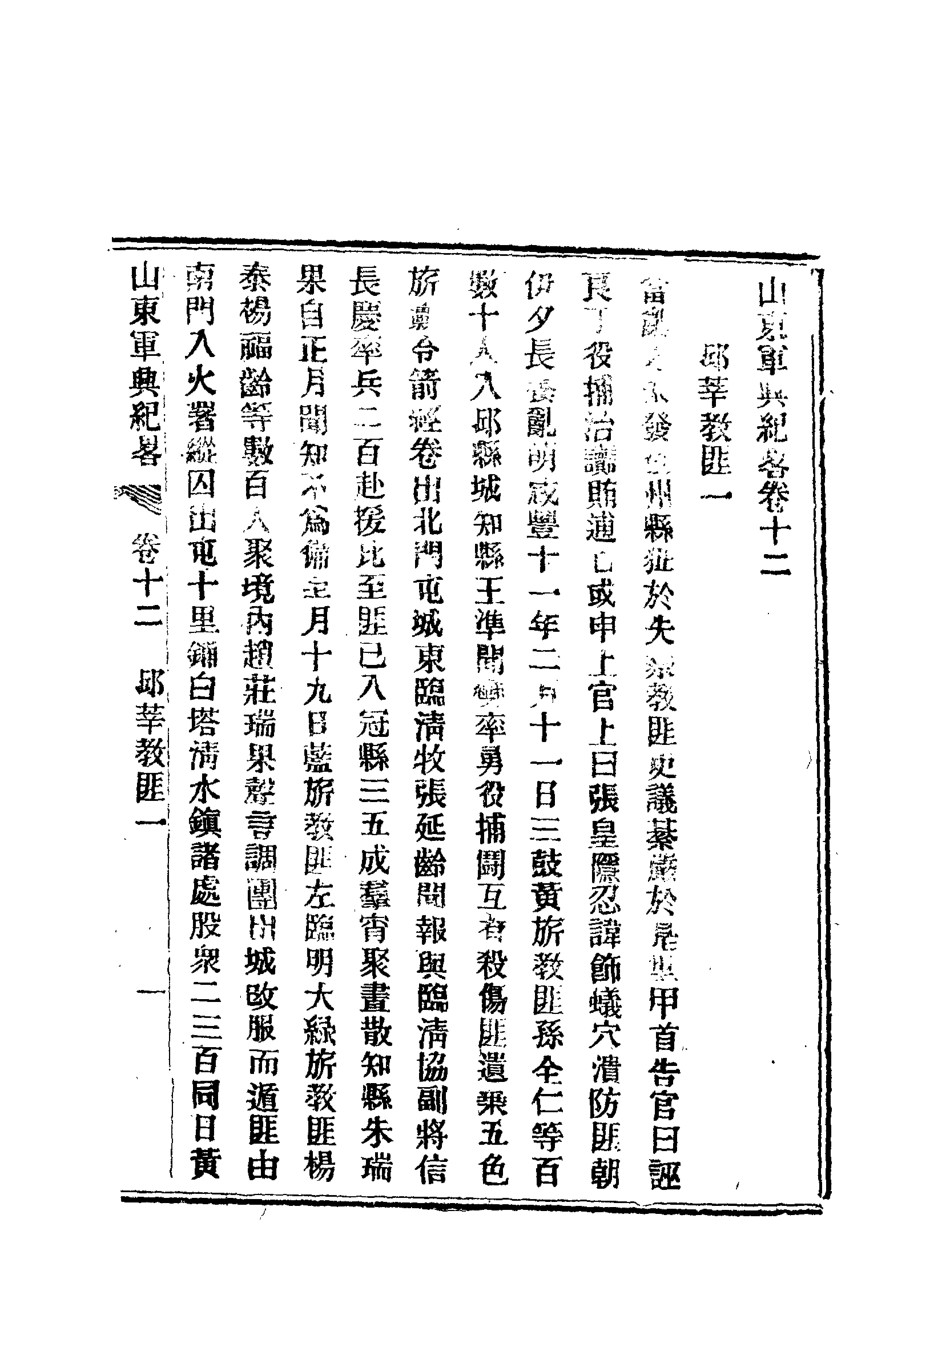 山東軍興紀畧卷十二
邱莘教匪一
當亂之未發也州縣狃於失察教匪吏議綦嚴於是里甲首告官曰誣
良丁役捕治讞賄逋亡或申上官上曰張皇隱忍諱飾蟻穴潰防匪朝
伊夕長養亂萌咸豐十一年二月十一日三鼓黃旂教匪孫全仁等百
數十人入邱縣城知縣王準聞變率勇役捕鬭互有殺傷匪遺棄五色
旂纛令箭經卷出北門屯城東臨淸牧張延齡聞報與臨淸協副將信
長慶率兵二百赴援比至匪已入冠縣三五成羣宵聚晝散知縣朱瑞
果自正月聞知不爲備至月十九日藍旂教匪左臨明大綠旂教匪楊
泰楊福齡等數百人聚境內趙莊瑞果聲言調團出城改服而遁匪由
南門入火署縱囚出屯十里鋪白塔淸水鎭諸處股衆二三百同日黃
山東軍興紀畧 卷十二 邱莘教匪一 一